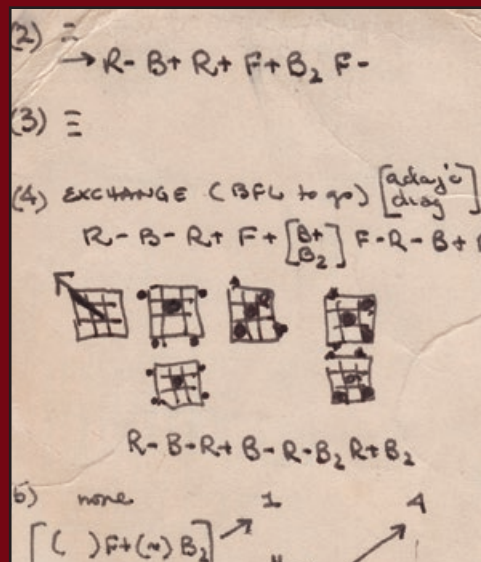 (2) Ξ
→ R- B+ R+ F+ B₂ F-
(3) Ξ
(4) EXCHANGE (BFL to go) [adaj'c
diag]
R- B- R+ F+ [B+
B₂] F- R- B+
R- B- R+ B- R- B₂ R+ B₂
b) none 1 4
[( ) F+ (~) B₂]